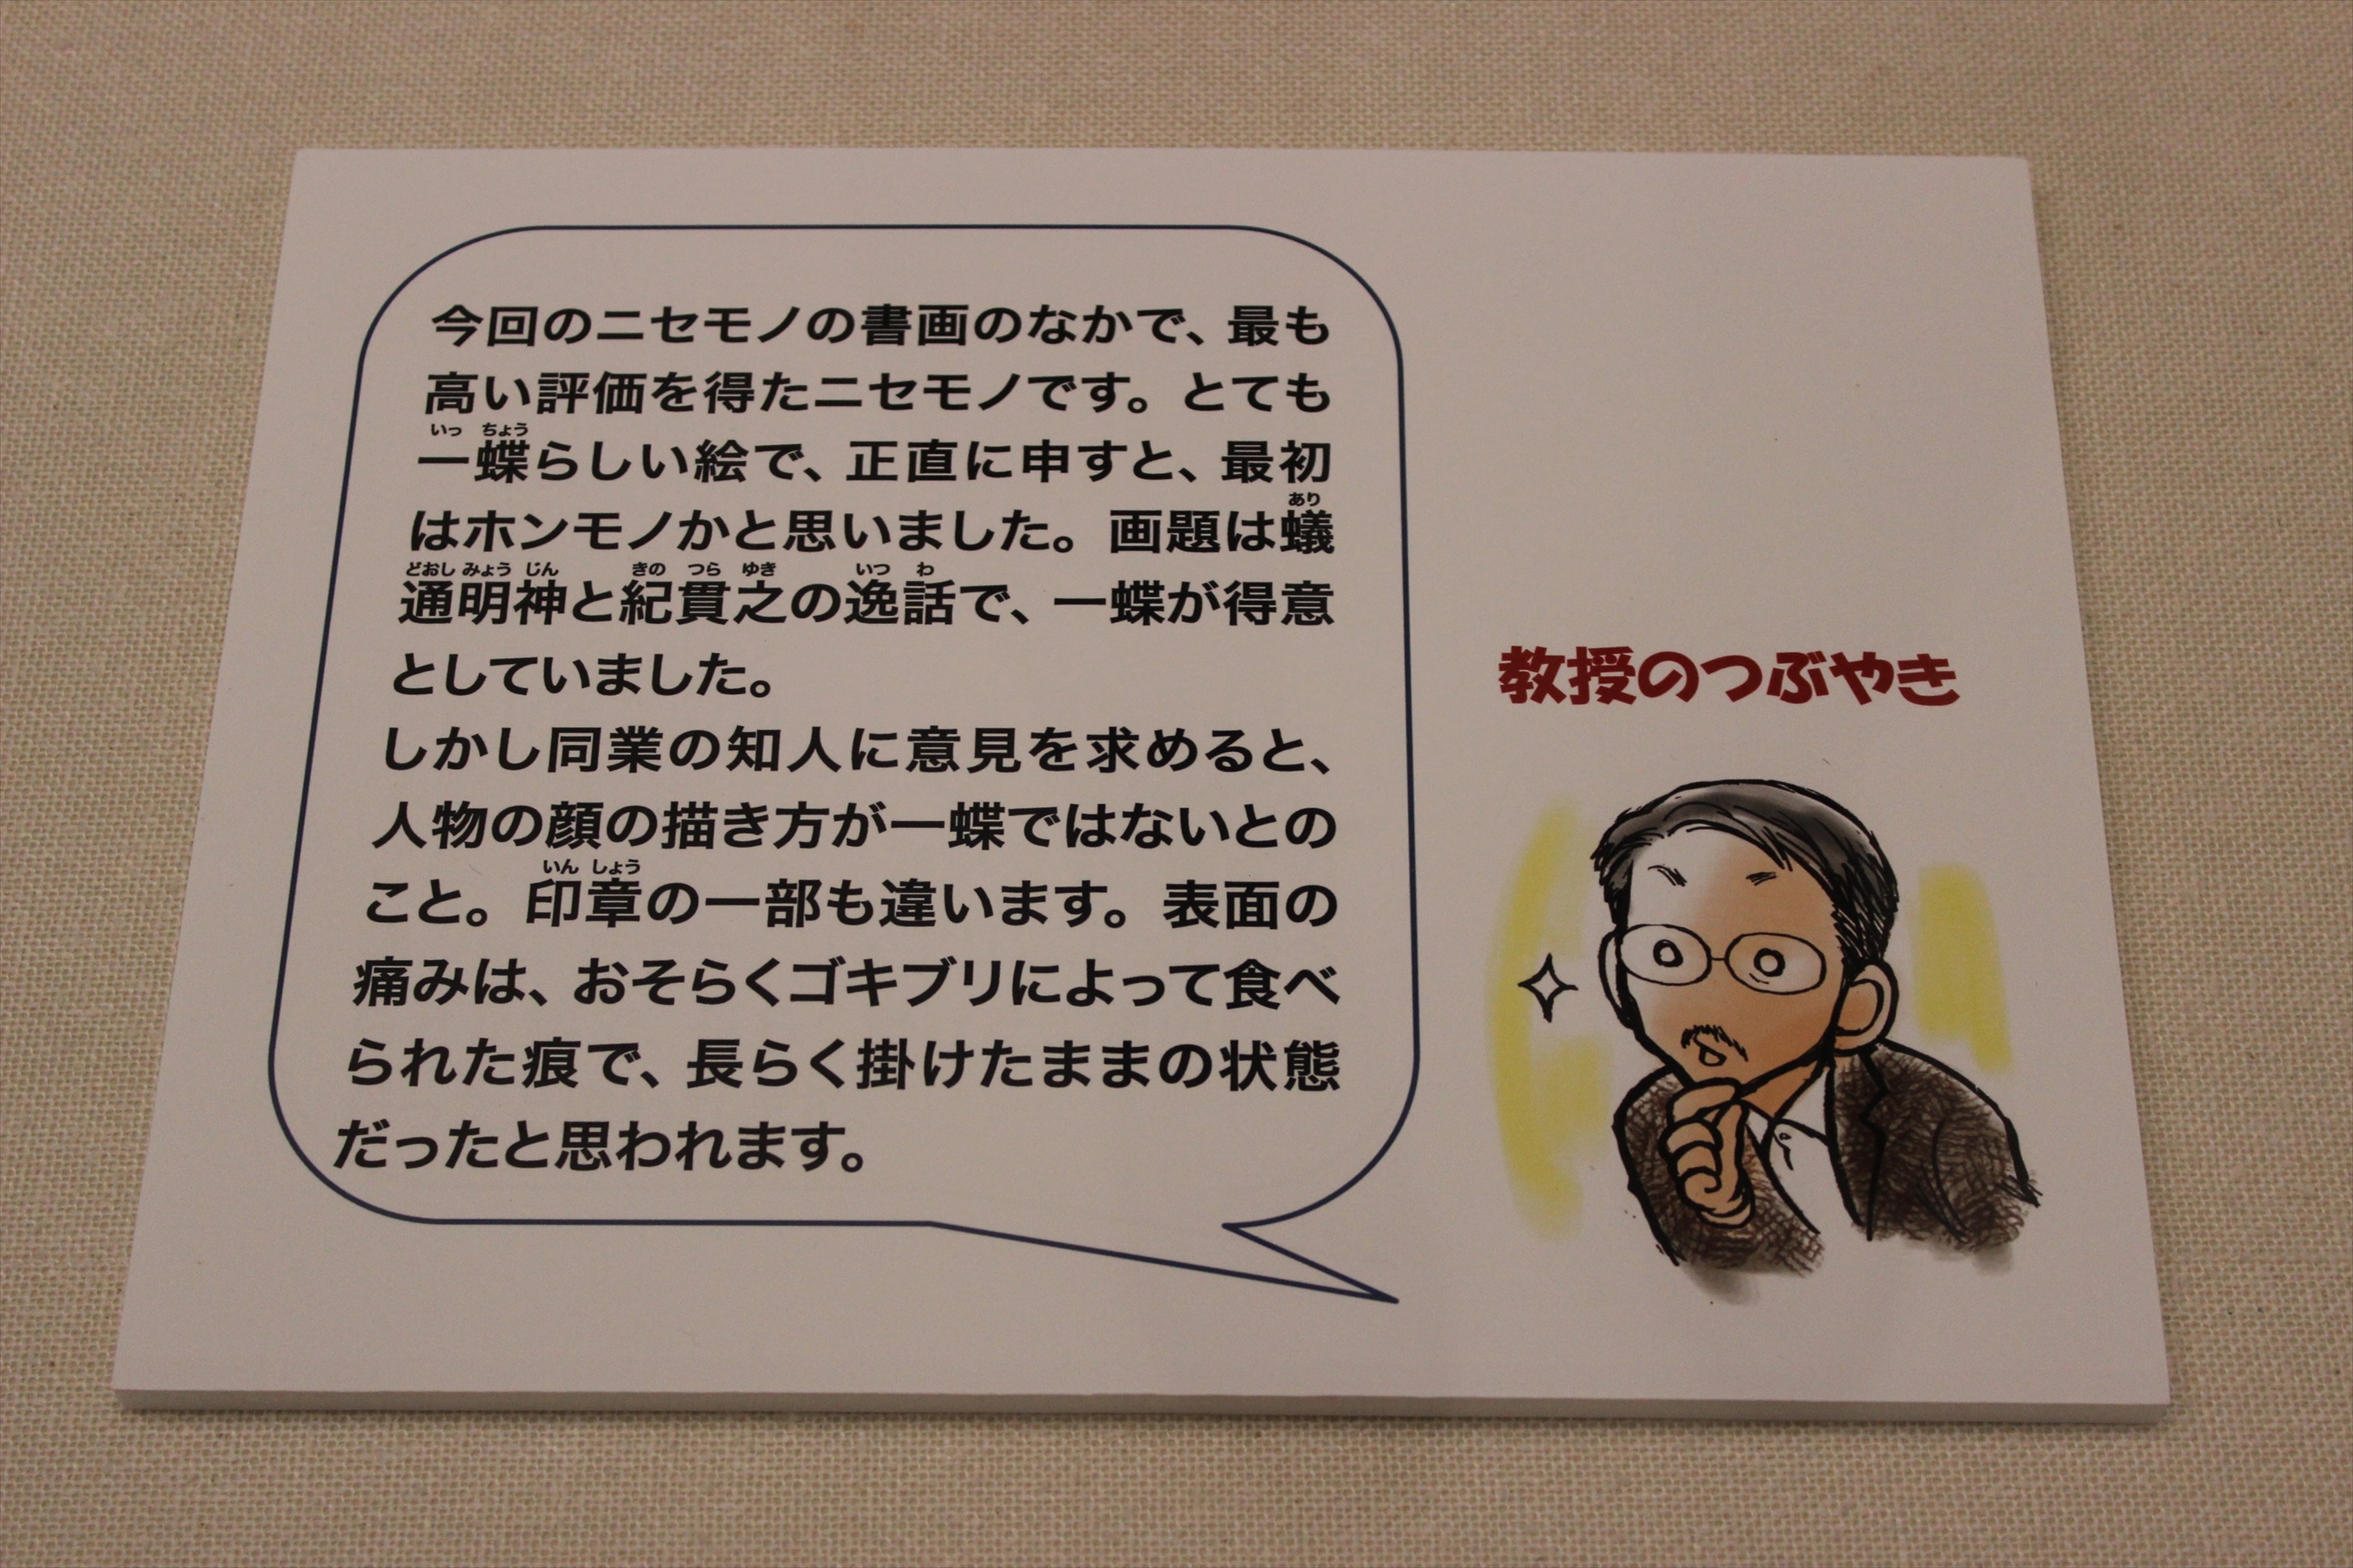 今回のニセモノの書画のなかで、最も
高い評価を得たニセモノです。とても
いっ ちょう
一蝶らしい絵で、正直に申すと、最初
はホンモノかと思いました。画題は蟻
あり
どおし みょう じん きの つら ゆき いつ わ
通明神と紀貫之の逸話で、一蝶が得意
としていました。
しかし同業の知人に意見を求めると、
人物の顔の描き方が一蝶ではないとの
いん しょう
こと。印章の一部も違います。表面の
痛みは、おそらくゴキブリによって食べ
られた痕で、長らく掛けたままの状態
だったと思われます。
教授のつぶやき